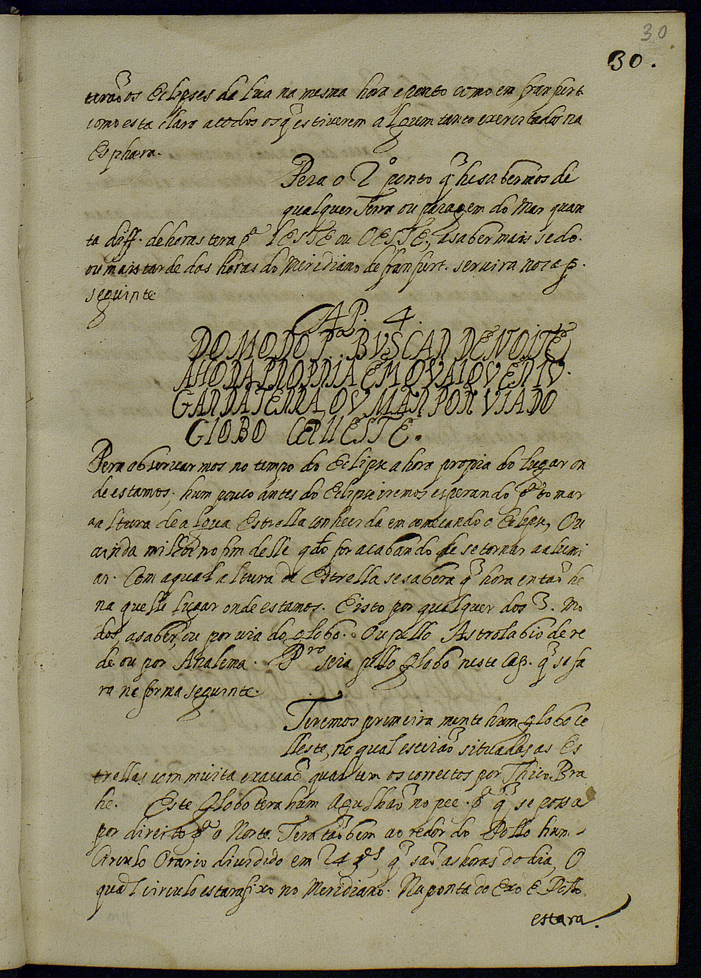 30
30.
terão os Eclipses da Lua na mesma hora e ponto como em franfurt
como esta claro a todos os q̃ estiverem algum tanto exercitados na
Esphara.
Pera o 2º ponto q̃ he sabermos de
qualquer Terra ou paragem do Mar quan
ta diff. de horas tera pª LESTE ou OESTE, a saber mais sedo.
ou mais tarde das horas do Meridiano de franfurt. servira nosa p.
seguinte
CAP. 4.
DO MODO Pª BVSCAR DE NOITE
A HORA PROPRIA EM QVALQVER LV-
GAR DA TERRA OV MAR POR VIA DO
GLOBO CELLESTE.
Pera observarmos no tempo do Eclipse a hora propia do lugar on
de estamos; hum pouco antes do Eclipse iremos esperando pª tomar
a altura de algũa Estrella conhecida em comecando o Eclipse, Ou
ainda milhor no fim delle qdo for acabando de se tornar a alumi
ar. Com a qual altura de Estrella se sabera q̃ hora entaõ he
naquelle lugar onde estamos. E isto por qualquer dos 3. Mo
dos, a saber, ou por via do globo. Ou pello Astrolabio de re
de ou por Analema. Pro seia pello Globo neste Cap. q̃ se fa
ra na forma seguinte.
Teremos primeiramente hum globo ce
lleste, no qual esteiaõ situadas as Es
trellas com muita exacçaõ qual tem os correctos por Thico Bra
he. Este Globo tera hum Agulhaõ no pee pª q̃ se possa
por direito pª o Norte. Tera taõ bem ao redor do Pollo hum
Circulo Orario divdido em 24 ps q̃ saõ as horas do dia, O
qual circulo estara fixo no Meridiano. Na ponta do Exo E Pollo
estara.